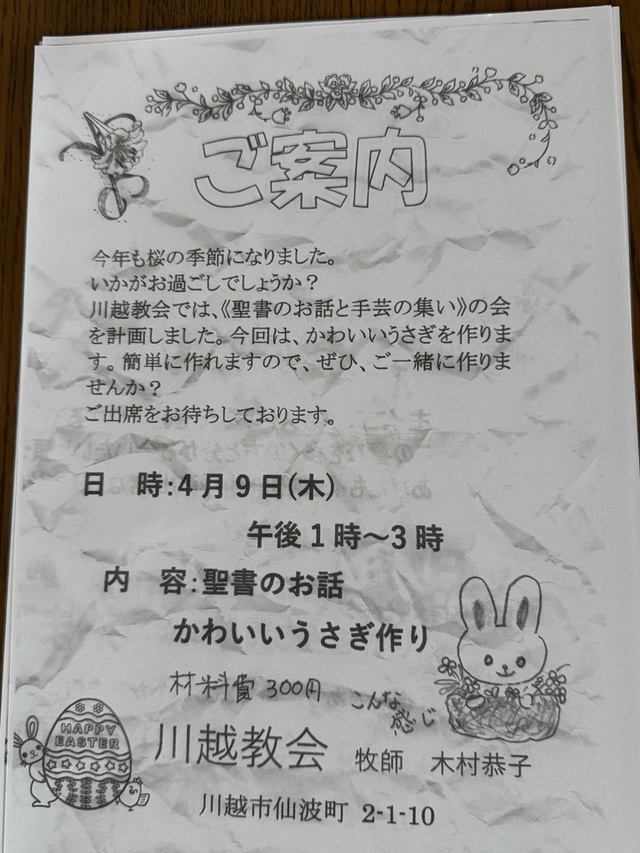 ご案内
今年も桜の季節になりました。
いかがお過ごしでしょうか？
川越教会では、《聖書のお話と手芸の集い》の会
を計画しました。今回は、かわいいうさぎを作りま
す。簡単に作れますので、ぜひ、ご一緒に作りま
せんか？
ご出席をお待ちしております。
日　時：4月9日(木)
午後1時～3時
内　容：聖書のお話
かわいいうさぎ作り
材料費 300円
こんな
感じ
HAPPY
EASTER
川越教会　牧師　木村恭子
川越市仙波町 2-1-10